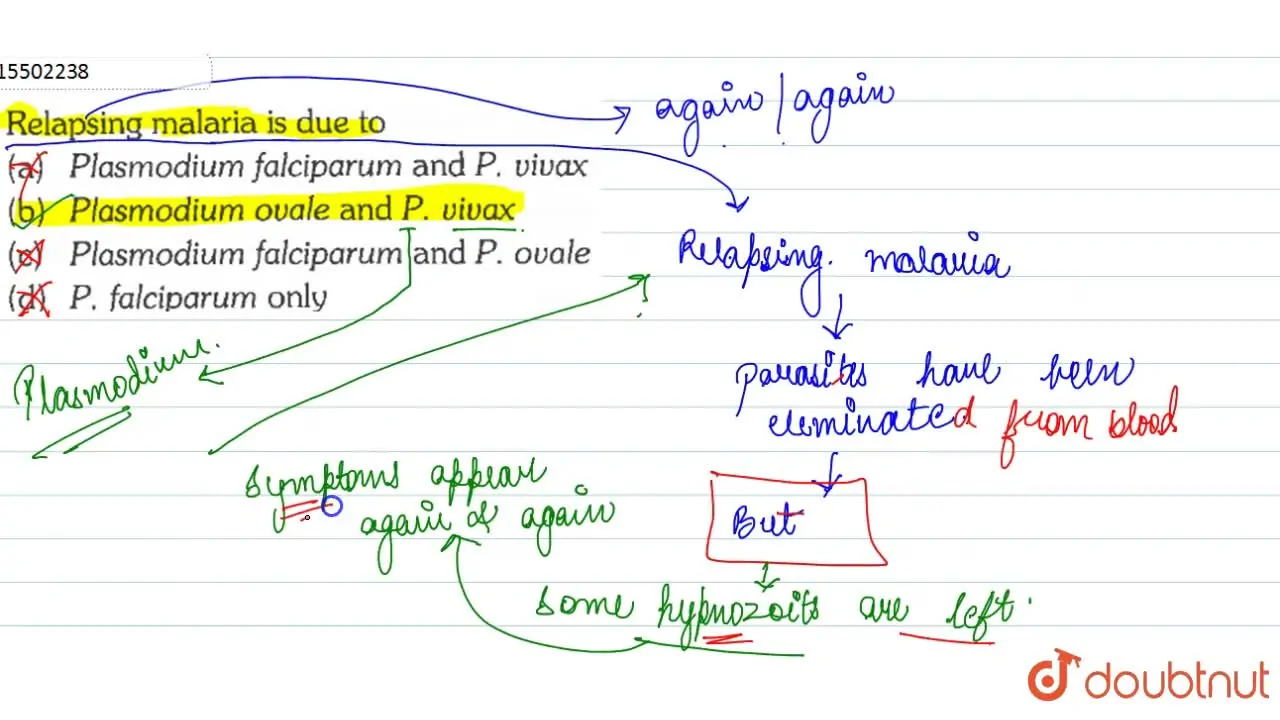 15502238
Relapsing malaria is due to
(a) Plasmodium falciparum and P. vivax
(b) Plasmodium ovale and P. vivax
(c) Plasmodium falciparum and P. ovale
(d) P. falciparum only
again / again
Relapsing malaria
parasites have been
eliminated from blood
But
some hypnozoits are left
symptoms appear
again & again
Plasmodium.
doubtnut